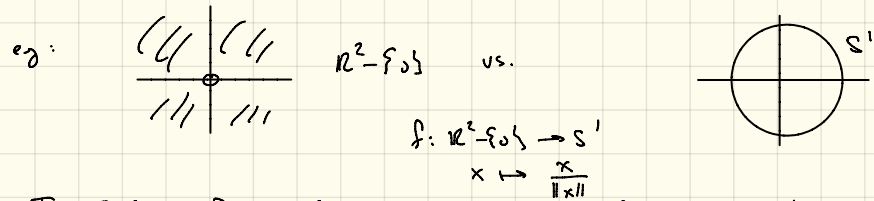 eg: ℝ²-{0} vs. S¹
f: ℝ²-{0} → S¹
x ↦ x/||x||